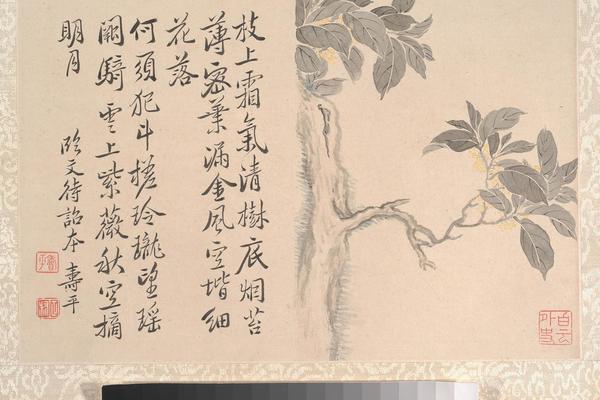 枝上霜氣清樹底烟苔
薄密葉漏金風空堦細
花落
何須犯斗槎玲瓏望瑤
闕騎雲上紫薇秋空摘
明月 臨文待詔本 壽平
白云外史